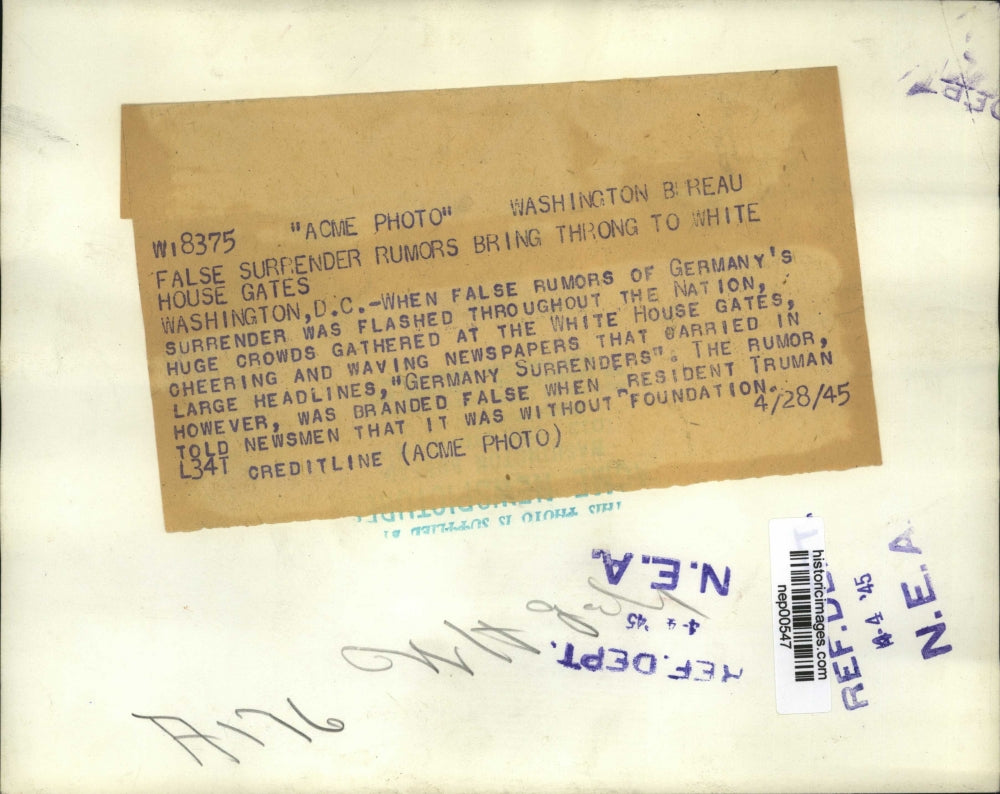 W18375 "ACME PHOTO" WASHINGTON B REAU
FALSE SURRENDER RUMORS BRING THRONG TO WHITE
HOUSE GATES
WASHINGTON,D.C.-WHEN FALSE RUMORS OF GERMANY'S
SURRENDER WAS FLASHED THROUGHOUT THE NATION,
HUGE CROWDS GATHERED AT THE WHITE HOUSE GATES,
CHEERING AND WAVING NEWSPAPERS THAT CARRIED IN
LARGE HEADLINES,"GERMANY SURRENDERS". THE RUMOR,
HOWEVER, WAS BRANDED FALSE WHEN PRESIDENT TRUMAN
TOLD NEWSMEN THAT IT WAS WITHOUT FOUNDATION.
L34T CREDITLINE (ACME PHOTO) 4/28/45
THIS PHOTO IS SUPPLIED BY
N.E.A.
'45
REF. DEPT.
historicimages.com
nep00547
REF. DEPT.
'45
N.E.A.
DEPT
A176